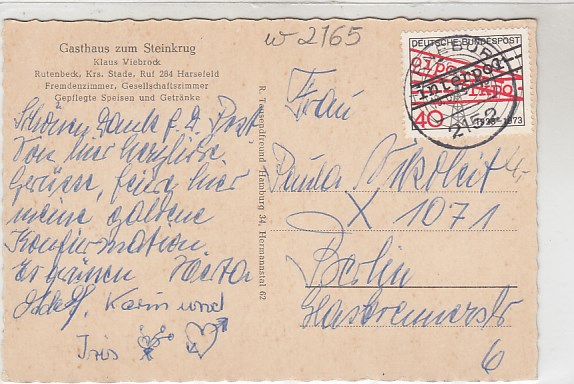 w-2165
Gasthaus zum Steinkrug
Klaus Viebrock
Rutenbeck, Krs. Stade, Ruf 284 Harsefeld
Fremdenzimmer, Gesellschaftszimmer
Gepflegte Speisen und Getränke
Schönen Dank f. d. Post
Von hier herzliche
Grüsse, feire hier
meine goldene
Konfirmation
Karin und
Iris
R. Tausendfreund Hamburg 34, Hermannstal 62
DEUTSCHE BUNDESPOST
interpol
40
1923-1973
2152
Frau
Paula
X 1071
Berlin
6